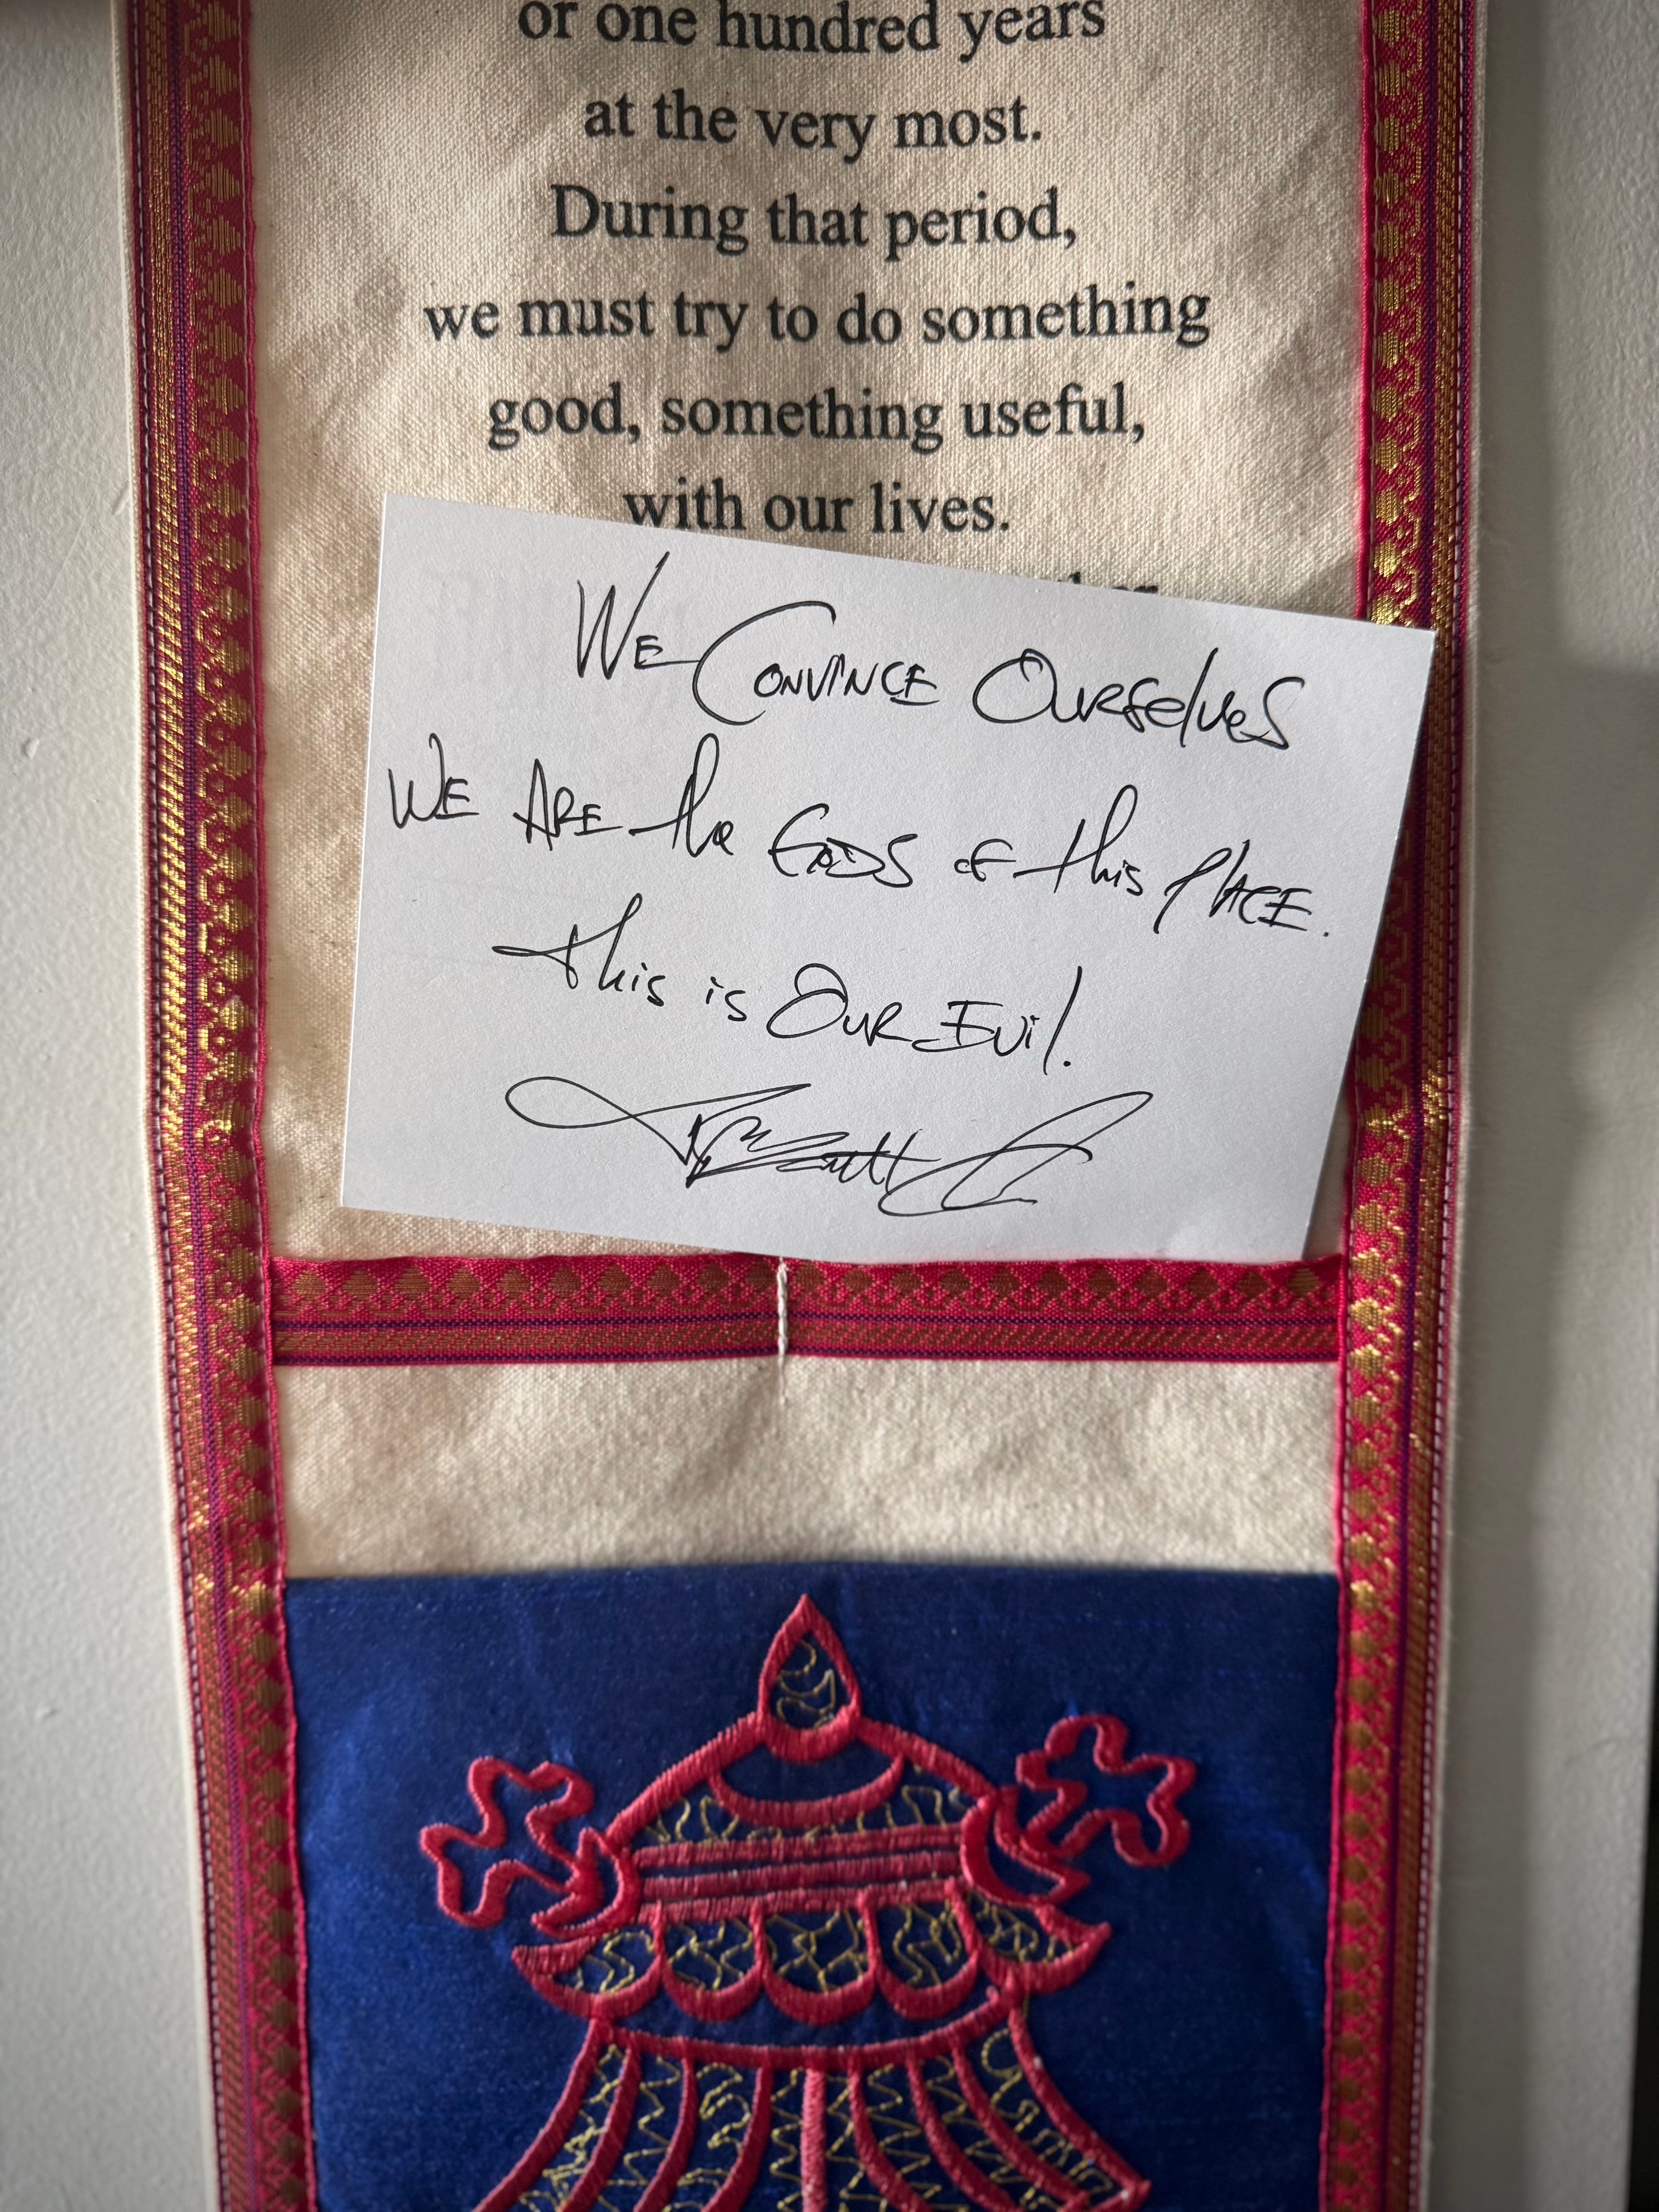 or one hundred years
at the very most.
During that period,
we must try to do something
good, something useful,
with our lives.
WE CONVINCE OURSElVES
WE ARE the GODS OF this PlACE.
this is OUR EVil.